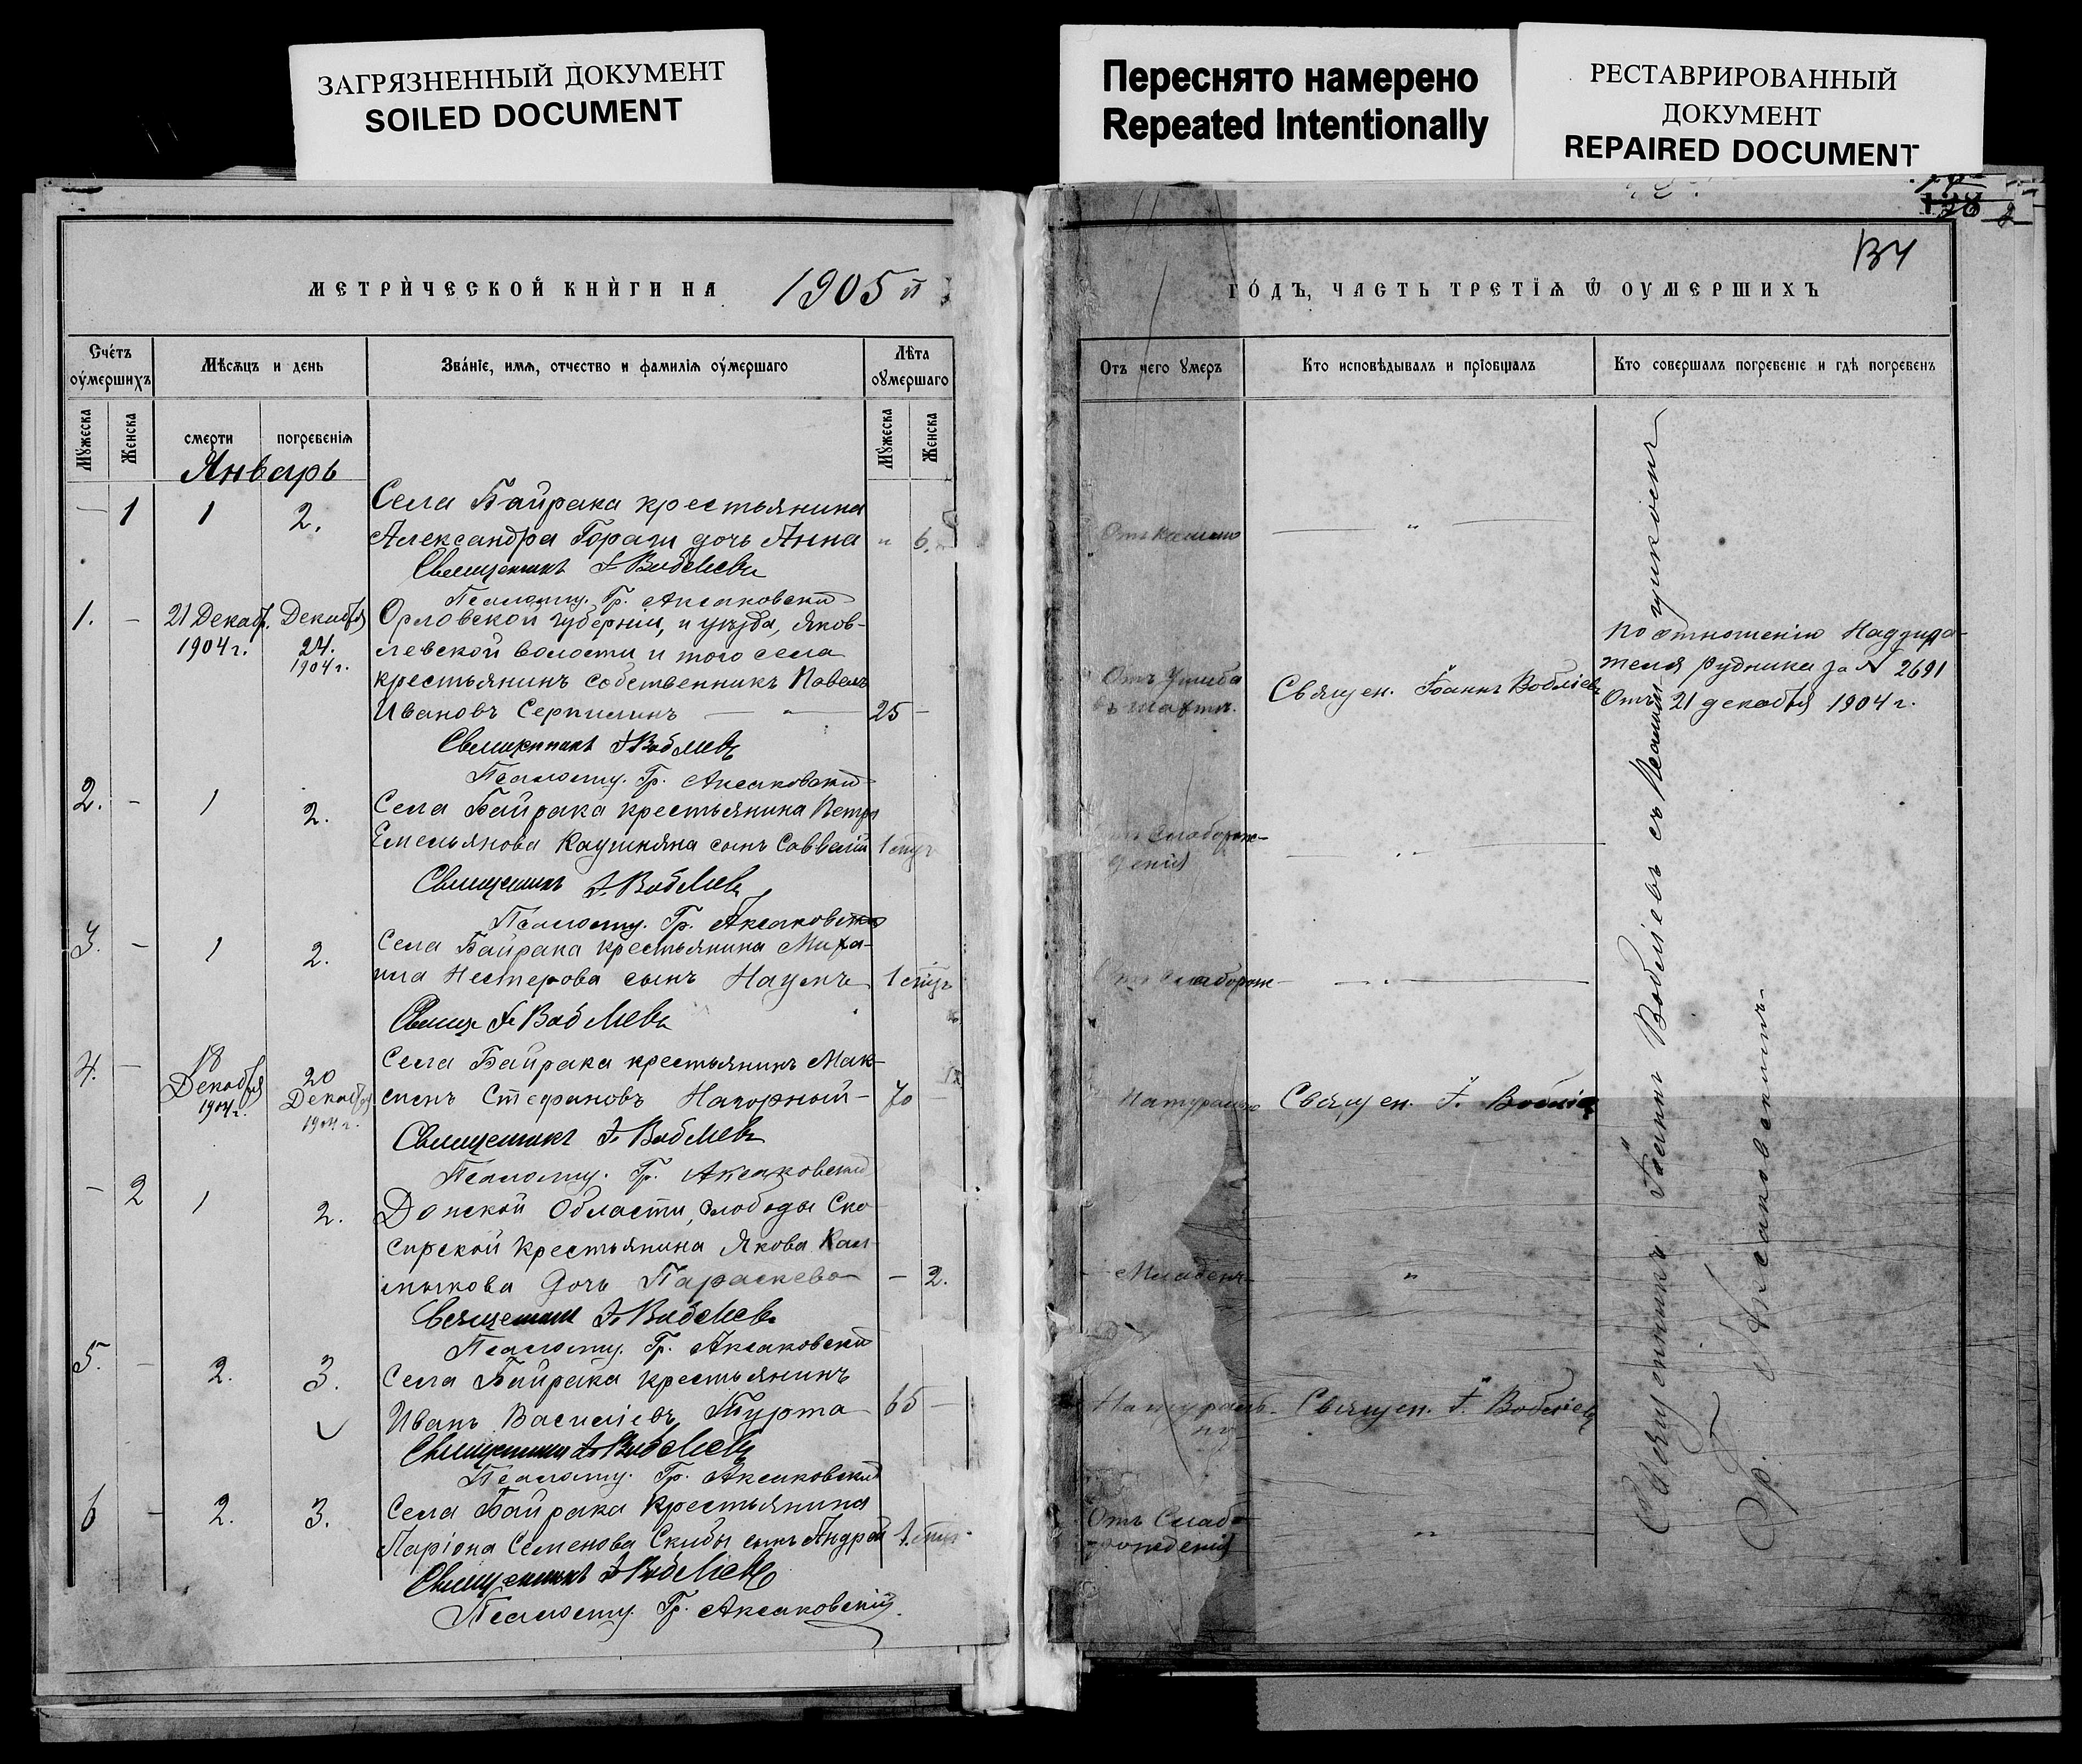 ЗАГРЯЗНЕННЫЙ ДОКУМЕНТ
SOILED DOCUMENT
Переснято намерено
Repeated Intentionally
РЕСТАВРИРОВАННЫЙ
ДОКУМЕНТ
REPAIRED DOCUMENT
МЕТРИЧЕСКОЙ КНИГИ НА 1905 й
Счетъ оумершихъ
Мѣсяцъ и день
Званіе, имя, отчество и фамилія оумершаго
Лѣта оумершаго
Мужеска
Женска
смерти
погребенія
Мужеска
Женска
Январь
– 1 1 2. Села Байрака крестьянина
Александра Горази дочь Анна " 6.
Священникъ І. Воблiевъ
Псаломщ. Гр. Аксаковскій
1. – 21 Декаб. Декабря Орловской губерніи, и уѣзда, Яков-
1904 г. 24. левской волости и того села
1904 г. крестьянинъ собственникъ Павелъ
Ивановъ Серпилинъ — " — 25 –
Священникъ І. Воблiевъ
Псаломщ. Гр. Аксаковскій
2. – 1 2. Села Байрака крестьянина Петра
Емельянова сынъ Савватій 1
Священникъ І. Воблiевъ
Псаломщ. Гр. Аксаковскій
3. – 1 2. Села Байрака крестьянина Миха-
ила Нестерова сынъ Наумъ 1
Свящ І. Воблiевъ
4. – 18 Декабря 1904 г. 20 Декабря 1904 г. Села Байрака крестьянинъ Мак-
симъ Стефановъ Нагорный – 70 –
Священникъ І. Воблiевъ
Псаломщ. Гр. Аксаковскій
– 2 1 2. Донской Области, слободы Ско-
сырской крестьянина Якова Кал-
мыкова дочь Параскева – 2.
Священникъ І. Воблiевъ
Псаломщ. Гр. Аксаковскій
5. – 2. 3. Села Байрака крестьянинъ
Иванъ Василіевъ Турта 65 –
Священникъ І. Воблiевъ
Псаломщ. Гр. Аксаковскій
6 – 2. 3. Села Байрака крестьянина
Ларіона Семенова Скибы сынъ Андрей 1.
Священникъ І. Воблiевъ
Псаломщ. Гр. Аксаковскій
134
ГОДЪ, ЧАСТЬ ТРЕТІЯ Ѿ ОУМЕРШИХЪ
Отъ чего умеръ
Кто исповѣдывалъ и пріобщалъ
Кто совершалъ погребеніе и гдѣ погребенъ
Отъ кашлю — " —
Отъ ушиба
въ шахтѣ. Священ. Іоаннъ Воблiевъ
По отношенію Надзира-
теля рудника за № 2691
Отъ 21 декабря 1904 г.
Отъ слаборож-
денія — " —
Отъ слаборож- — " —
Натурально Священ. І. Воблiевъ
Младенч. "
Натураль-
но Священ. І. Воблiевъ
Отъ Слабо-
рожденія "
Священникъ Іоаннъ Воблiевъ съ Псаломщикомъ
Гр. Аксаковскимъ